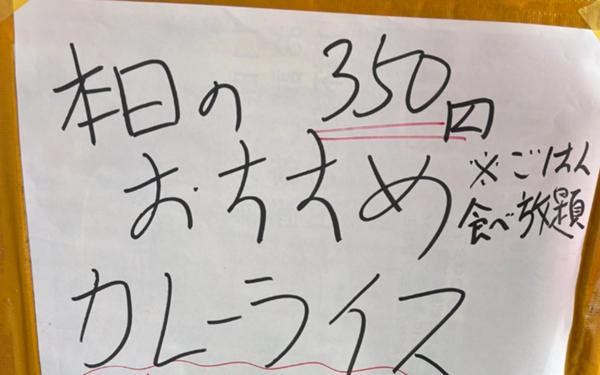 本日の 350円
おすすめ ※ごはん
食べ放題
カレーライス